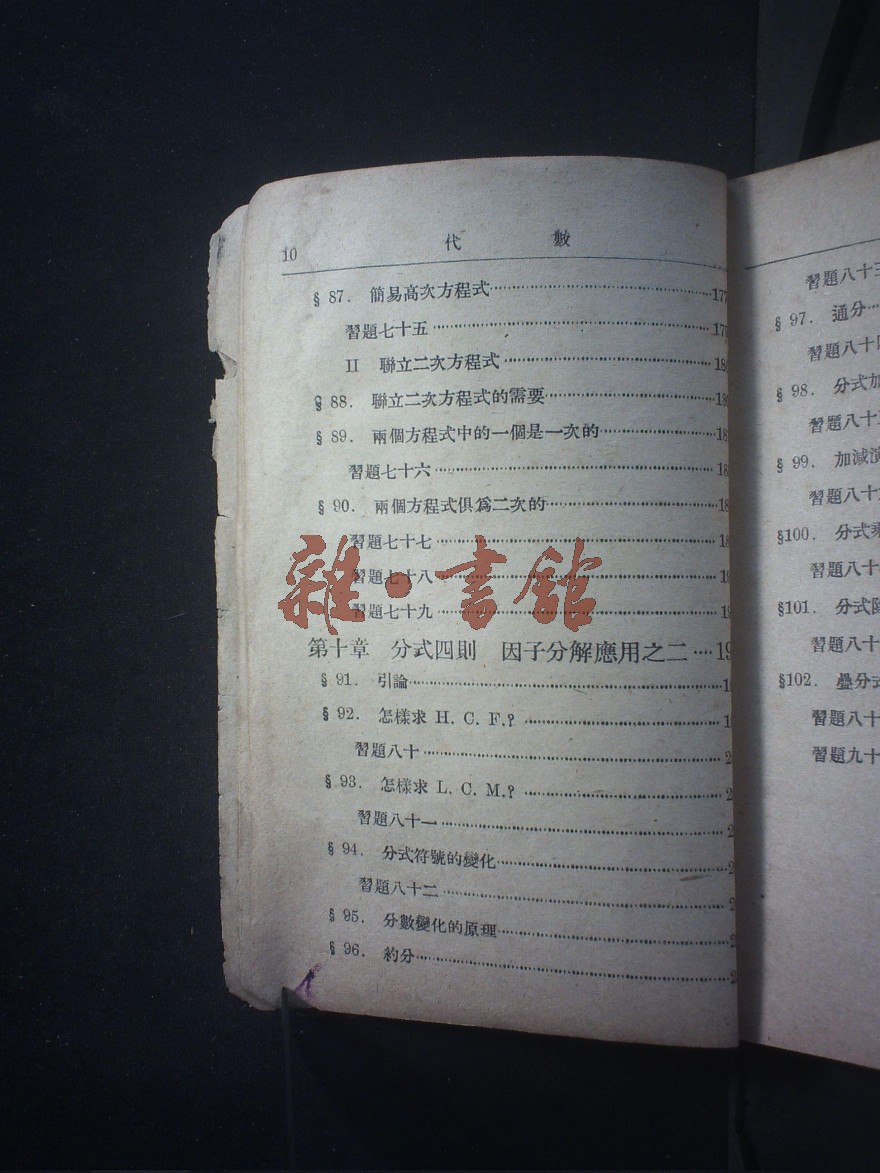 10 代 數
§ 87. 簡易高次方程式………177
習題七十五………17
II 聯立二次方程式………18
§ 88. 聯立二次方程式的需要………18
§ 89. 兩個方程式中的一個是一次的………18
習題七十六………18
§ 90. 兩個方程式俱爲二次的………18
習題七十七………18
習題七十八………19
習題七十九………19
雜·書館
第十章 分式四則 因子分解應用之二…19
§ 91. 引論………1
§ 92. 怎樣求 H. C. F.?………19
習題八十………2
§ 93. 怎樣求 L. C. M.?………2
習題八十一………2
§ 94. 分式符號的變化………2
習題八十二………2
§ 95. 分數變化的原理………2
§ 96. 約分………2
習題八十三
§ 97. 通分…
習題八十
§ 98. 分式加
習題八十
§ 99. 加減
習題八十
§100. 分式乘
習題八十
§101. 分式
習題八十
§102. 疊分式
習題八十
習題九十